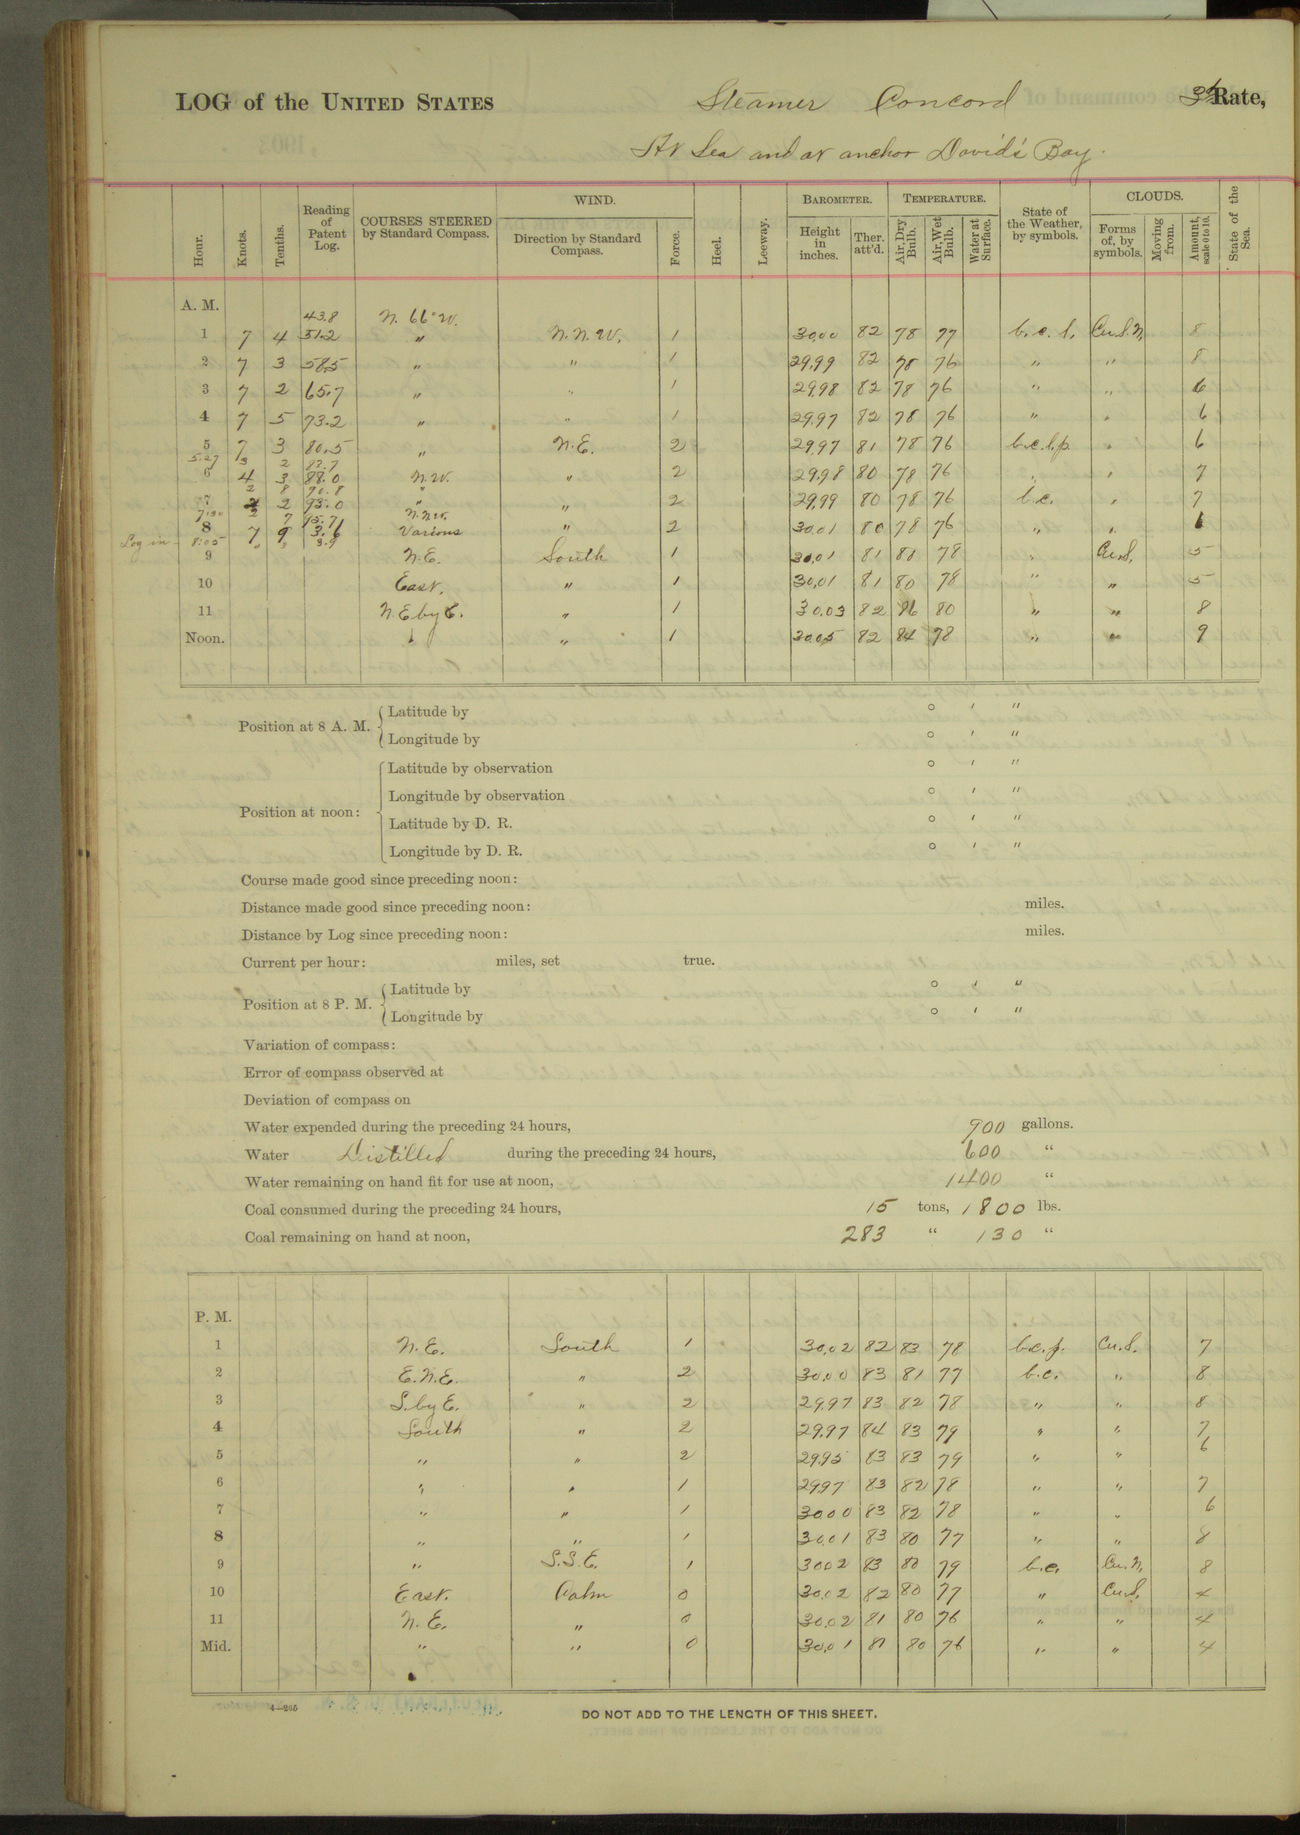 LOG of the UNITED STATES Steamer Concord 3d Rate,
At Sea and at anchor David's Bay.
Hour. Knots. Tenths. Reading of Patent Log. COURSES STEERED by Standard Compass. WIND. Direction by Standard Compass. Force. Heel. Leeway. BAROMETER. Height in inches. Ther. att'd. TEMPERATURE. Air, Dry Bulb. Air, Wet Bulb. Water at Surface. State of the Weather, by symbols. CLOUDS. Forms of, by symbols. Moving from. Amount, scale 0 to 10. State of the Sea.
A. M.
43.8 N. 66° W.
1 7 4 51.2 " N.N.W. 1 30.00 82 78 77 b.c.l. Cu.S.N. 8
2 7 3 58.5 " " 1 29.99 82 78 76 " " 8
3 7 2 65.7 " " 1 29.98 82 78 76 " " 6
4 7 5 73.2 " " 1 29.97 82 78 76 " " 6
5 7 3 80.5 " N.E. 2 29.97 81 78 76 b.c.l.p. " 6
5.27 3 2 83.7
6 4 3 88.0 N.W. " 2 29.98 80 78 76 " " 7
2 8 90.8 "
7 2 2 93.0 " " 2 29.99 80 78 76 b.c. " 7
7:30 2 7 95.7 N.N.W.
8 7 9 3.6 Various " 2 30.01 80 78 76 " " 6
Log in 8:05 " 3 3.9
9 N.E. South 1 30.01 81 81 78 " Cu.S. 5
10 East. " 1 30.01 81 80 78 " " 5
11 N.E. by E. " 1 30.03 82 86 80 " " 8
Noon. " " 1 30.05 82 84 78 " " 9
Position at 8 A. M. Latitude by ° ' "
Longitude by ° ' "
Position at noon: Latitude by observation ° ' "
Longitude by observation ° ' "
Latitude by D. R. ° ' "
Longitude by D. R. ° ' "
Course made good since preceding noon:
Distance made good since preceding noon: miles.
Distance by Log since preceding noon: miles.
Current per hour: miles, set true.
Position at 8 P. M. Latitude by ° ' "
Longitude by ° ' "
Variation of compass:
Error of compass observed at
Deviation of compass on
Water expended during the preceding 24 hours, 900 gallons.
Water Distilled during the preceding 24 hours, 600 "
Water remaining on hand fit for use at noon, 1400 "
Coal consumed during the preceding 24 hours, 15 tons, 1800 lbs.
Coal remaining on hand at noon, 283 " 130 "
P. M.
1 N.E. South 1 30.02 82 83 78 b.c.p. Cu.S. 7
2 E.N.E. " 2 30.00 83 81 77 b.c. " 8
3 S. by E. " 2 29.97 83 82 78 " " 8
4 South " 2 29.97 84 83 79 " " 7
5 " " 2 29.95 83 83 79 " " 6
6 " " 1 29.97 83 82 78 " " 7
7 " " 1 30.00 83 82 78 " " 6
8 " " 1 30.01 83 80 77 " " 8
9 " S.S.E. 1 30.02 83 80 79 b.c. Cu.N. 8
10 East. Calm 0 30.02 82 80 77 " Cu.S. 4
11 N.E. " 0 30.02 81 80 76 " " 4
Mid. " " 0 30.01 81 80 76 " " 4
4—265 DO NOT ADD TO THE LENGTH OF THIS SHEET.